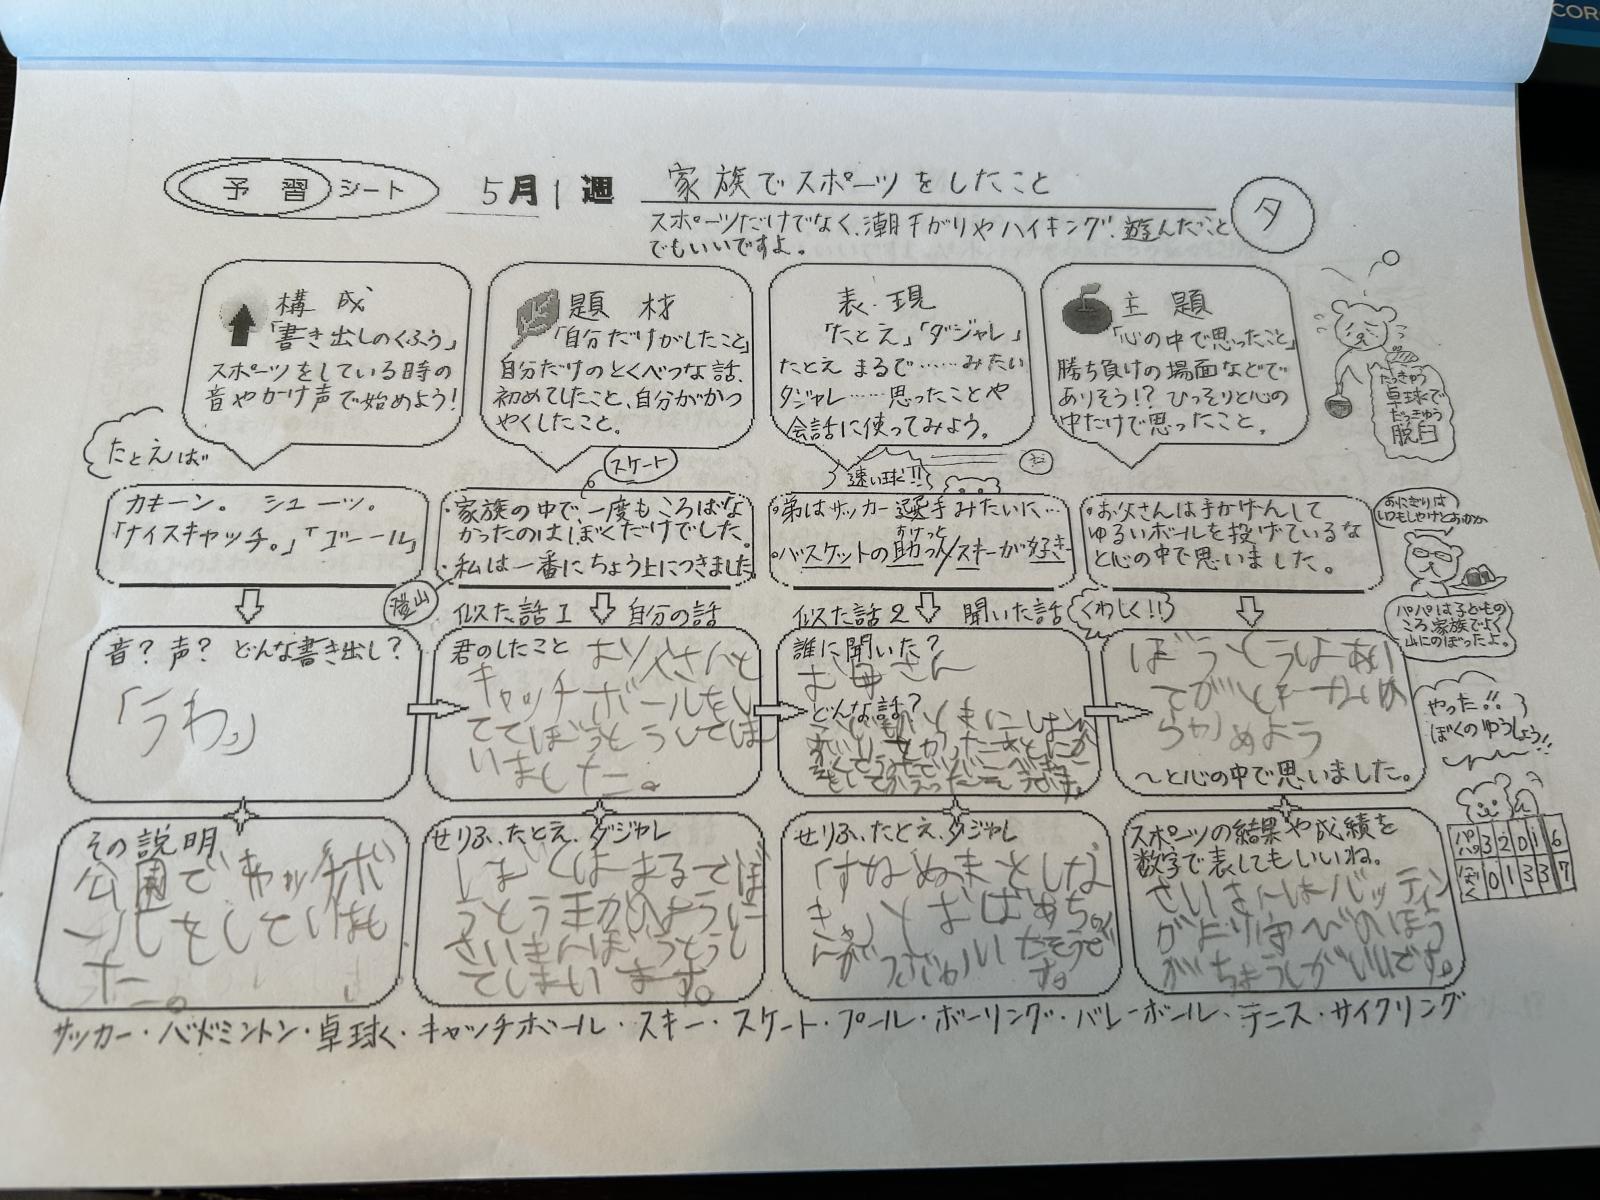 予習シート 5月1週 家族でスポーツをしたこと
スポーツだけでなく、潮干がりやハイキング、遊んだこと
でもいいですよ。
夕
構成
「書き出しのくふう」
スポーツをしている時の
音やかけ声で始めよう!
題材
「自分だけがしたこと」
自分だけのとくべつな話、
初めてしたこと、自分がかつ
やくしたこと。
表現
「たとえ」「ダジャレ」
たとえ まるで……みたい
ダジャレ……思ったことや
会話に使ってみよう。
主題
「心の中で思ったこと」
勝ち負けの場面などで
ありそう!? ひっそりと心の
中だけで思ったこと。
たっきゅう
卓球で
だっきゅう
脱臼
たとえば
カキーン。 シューッ。
「ナイスキャッチ。」「ゴール」
スケート
・家族の中で、一度もころばな
かったのはぼくだけでした。
・私は一番にちょう上につきました
登山
速い球!!
・弟はサッカー選手みたいに…
・バスケットの助っ人/スキーが好きー
おけっと
・お父さんは手かげんして
ゆるいボールを投げているな
と心の中で思いました。
おにぎりは
いつもしゃけとおかか
パパは子どもの
ころ家族でよく
山にのぼったよ。
音? 声? どんな書き出し?
「うわっ」
似た話1 自分の話
君のしたこと お父さんと
キャッチボールをし
ててぼうとうしてしま
いました。
似た話2 聞いた話
誰に聞いた?
お母さん
どんな話?
くわしく!!
ぼうとうしない
らやめよう
~と心の中で思いました。
やった!!
ぼくのゆうしょう!!
その説明
公園でキャッチボ
ールをしていまし
た。
せりふ、たとえ、ダジャレ
「ぼくはまるでぼ
うとう王かのように
さいきんぼうとうし
てしまいます。
せりふ、たとえ、ダジャレ
スポーツの結果や成績を
数字で表してもいいね。
さいきんはバッティン
がちょうしがいいです。
パパ 3 2 0 1 6
ぼく 0 1 3 3 7
サッカー・バドミントン・卓球・キャッチボール・スキー・スケート・プール・ボーリング・バレーボール、テニス・サイクリング